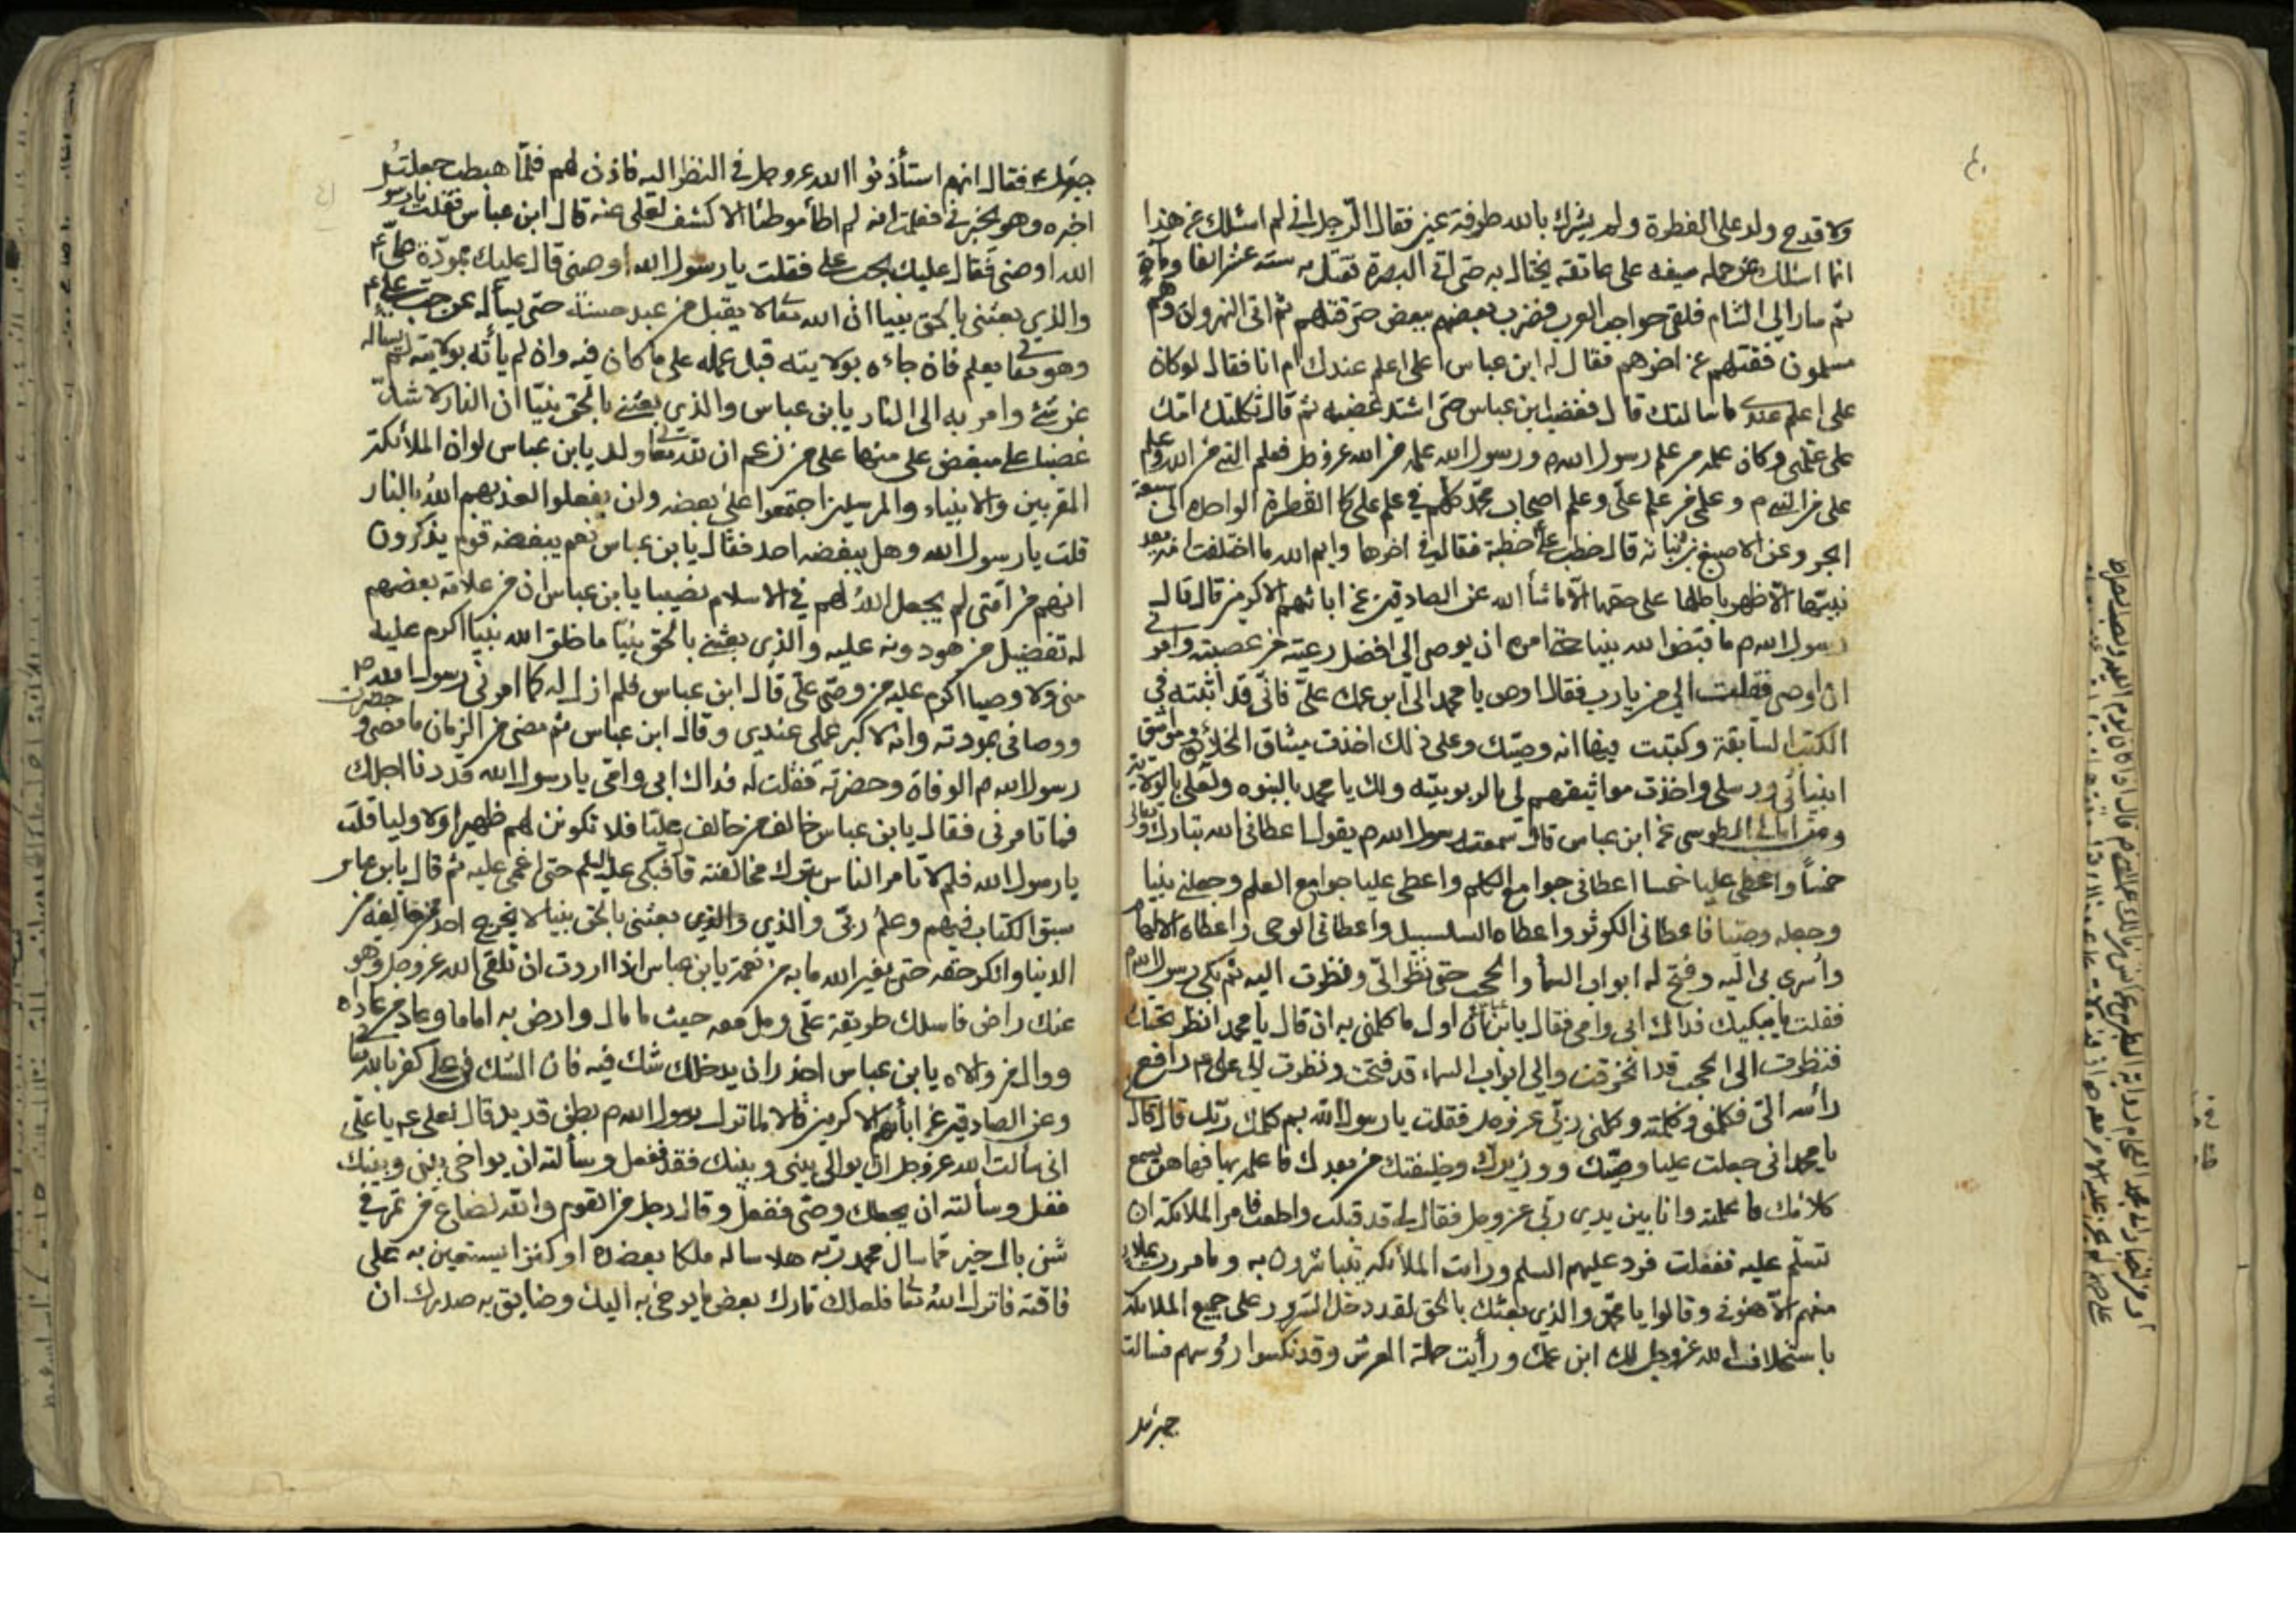 ولا قدح ولد على الفطرة ولم يشرك بالله طرفة عين فقال الرجل انى لم اسئلك عن هذا
انما اسئلك عن حمله سيفه على عاتقه يختال به حتى اتى البصرة فقتل به ستة عشر الفا
ثم سار الى الشام فلقى حواجب العرب فضرب بعضهم ببعض حتى قتلهم ثم اتى النهروان وهم
مسلمون فقتلهم عن اخرهم فقال له ابن عباس اعلى اعلم عندك ام انا فقال لو كان
على اعلم عندى ما سالتك قال فغضب ابن عباس حتى اشتد غضبه ثم قال ثكلتك امك
على علمنى وكان علمه من علم رسول الله ورسول الله علمه من الله عز وجل فعلم النبى من الله وعلم
على من النبى م وعلمى من علم على وعلم اصحاب محمد كلهم فى علم على كالقطرة الواحدة فى سبعة
ابحر وعن الاصبغ بن نباتة قال خطب على خطبة فقال فى اخرها وايم الله ما اختلفت امة بعد
نبيها الا ظهر باطلها على حقها الا ما شأ الله عن الصادقين عن ابائهم الاكرمين قال قال
رسول الله م ما قبض الله نبيا حتى امره ان يوصى الى افضل رعيته من عصبته وامرنى
ان اوصى فقلت الى من يا رب فقال اوص يا محمد الى ابن عمك على فانى قد اثبته فى
الكتب السابقة وكتبت فيها انه وصيك وعلى ذلك اخذت ميثاق الخلائق ومواثيق
انبيائى ورسلى واخذت مواثيقهم لى بالربوبيته ولك يا محمد بالنبوه ولعلى بالولاية
ومن امالى الطوسى عن ابن عباس قال سمعت رسول الله م يقول اعطانى الله تبارك وتعالى
خمسا واعطى عليا خمسا اعطانى جوامع الكلم واعطى عليا جوامع العلم وجعلنى نبيا
وجعله وصيا فاعطانى الكوثر واعطاه السلسبيل واعطانى الوحى واعطاه الالهام
وأسرى بى اليه وفتح له ابواب السمأ والحجب حتى نظر الى ونظرت اليه ثم بكى رسول الله م
فقلت ما يبكيك فداك ابى وامى فقال يا بن عباس ان اول ما كلمنى به ان قال يا محمد انظر تحتك
فنظرت الى الحجب قد انخرقت والى ابواب السماء قد فتحت ونظرت الى على م رافع
رأسه الى فكلمنى وكلمته وكلمنى ربى عز وجل فقلت يا رسول الله بم كلمك ربك قال قال
يا محمد انى جعلت عليا وصيك ووزيرك وخليفتك من بعدك فاعلمه بها فها هو يسمع
كلامك فاعلمته وانا بين يدى ربى عز وجل فقال لى قد قبلت واطعت فامر الملائكة ان
تسلم عليه ففعلت فرد عليهم السلم ورايت الملأئكه يتباشرون به وما مررت بملأ
منهم الا هنونى وقالوا يا محمد والذى بعثك بالحق لقد دخل السرور على جميع الملائكة
باستخلاف الله عز وجل لك ابن عمك ورأيت حملة العرش وقد نكسوا رؤسهم فسالت
جبرئيل
جبرئيل فقال انهم استأذنوا الله عز وجل فى النظر اليه فاذن لهم فلما هبطت جعلت
اخبره وهو يخبرنى فعلمت انه لم اطأ موطئا الا كشف لعلى عنه قال ابن عباس فقلت يا رسول
الله اوصنى فقال عليك بحب على فقلت يا رسول الله اوصنى قال عليك بمودة على م
والذى بعثنى بالحق نبيا ان الله تعا لا يقبل من عبد حسنة حتى يسأله عن حب على م
وهو تعا يعلم فان جاءه بولايته قبل عمله على ما كان فيه وان لم يأته بولايته لم يسأله
عن شئ وامر به الى النار يا بن عباس والذى بعثنى بالحق نبيا ان النار لاشد
غضبا على مبغض على منها على من زعم ان لله تعا ولد يا بن عباس لو ان الملأئكة
المقربين والانبياء والمرسلين اجتمعوا على بغضه ولن يفعلوا لعذبهم الله بالنار
قلت يا رسول الله وهل يبغضه احد فقال يا بن عباس نعم يبغضه قوم يذكرون
انهم من امتى لم يجعل الله لهم فى الاسلام نصيبا يا بن عباس ان من علامة بغضهم
له تفضيل من هو دونه عليه والذى بعثنى بالحق نبيا ما خلق الله نبيا اكرم عليه
منى ولا وصيا اكرم عليه من وصى على قال ابن عباس فلم ازل له كما امرنى رسول الله م
ووصانى بمودته وانه لاكبر عملى عندى وقال ابن عباس ثم مضى من الزمان ما مضى وحضرت
رسول الله م الوفاة وحضرته فقلت له فداك ابى وامى يا رسول الله قد دنا اجلك
فما تامرنى فقال يا بن عباس خالف من خالف عليا فلا تكونن لهم ظهيرا ولا وليا قلت
يا رسول الله فلم لا تامر الناس بترك مخالفته قا فبكى عليه السلم حتى اغمى عليه ثم قال يا بن عباس
سبق الكتاب فيهم وعلم ربى والذى والذى بعثنى بالحق نبيا لا يخرج احد من خالفه من
الدنيا وانكر حقه حتى يغير الله ما به من نعمة يا بن عباس اذا اردت ان تلقى الله عز وجل وهو
عنك راض فاسلك طريقة على ومل معه حيث ما مال وارض به اماما وعاد من عاداه
ووال من والاه يا بن عباس احذر ان يدخلك شك فيه فان الشك فى على كفر بالله تعا
وعن الصادقين عن ابأئهم الاكرمين قالا لما نزل رسول الله م بطن قديد قال لعلى عم يا على
انى سألت الله عز وجل ان يوالى بينى وبينك فقد فعل وسألته ان يواخى بينى وبينك
ففعل وسألته ان يجعلك وصى ففعل وقال رجل من القوم والله لصاع من تمر فى
شن بالى خير مما سال محمد ربه هلا ساله ملكا يعضده او كنزا يستعين به على
فاقته فانزل الله تعا فلعلك تارك بعض ما يوحى به اليك وضايق به صدرك ان